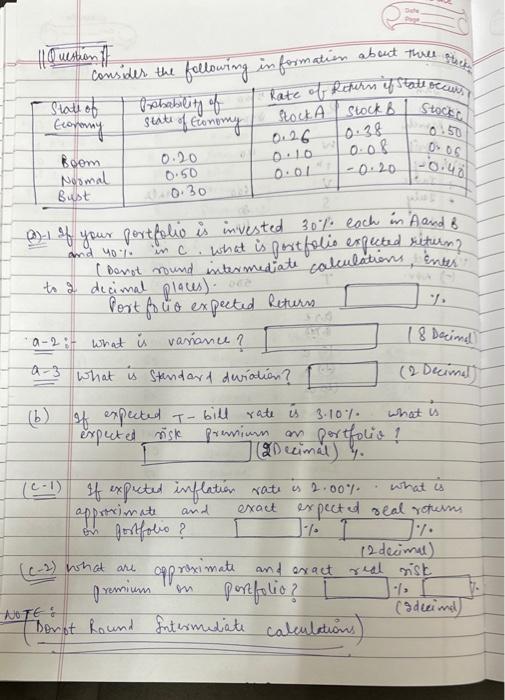 Date
Page
|| Question ||
consider the following information about three stocks
State of Economy | Probability of state of Economy | Rate of Return if State occurs
Stock A | Stock B | Stock C
Boom 0.20 0.26 0.38 0.50
Normal 0.50 0.10 0.08 0.06
Bust 0.30 0.01 -0.20 -0.40
(a)-1 If your portfolio is invested 30% each in A and B
and 40% in C. what is portfolio expected return?
(Donot round intermediate calculations, Enter
to 2 decimal places).
Portfolio expected Return %
a-2:- what is variance? (8 Decimal
a-3 What is Standard deviation? (2 Decimal)
(b) If expected T-bill rate is 3.10%. what is
expected risk premium on portfolio?
(2Decimal) %.
(c-1) If expected inflation rate is 2.00%. what is
approximate and exact expected real returns
on portfolio? % %.
(2 decimal)
(c-2) what are approximate and exact real risk
premium on portfolio? % %
(2 decimal)
NOTE:
(Donot Round Intermediate calculations)